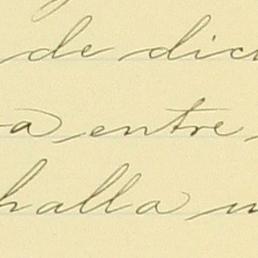 de dic
a entre
halla